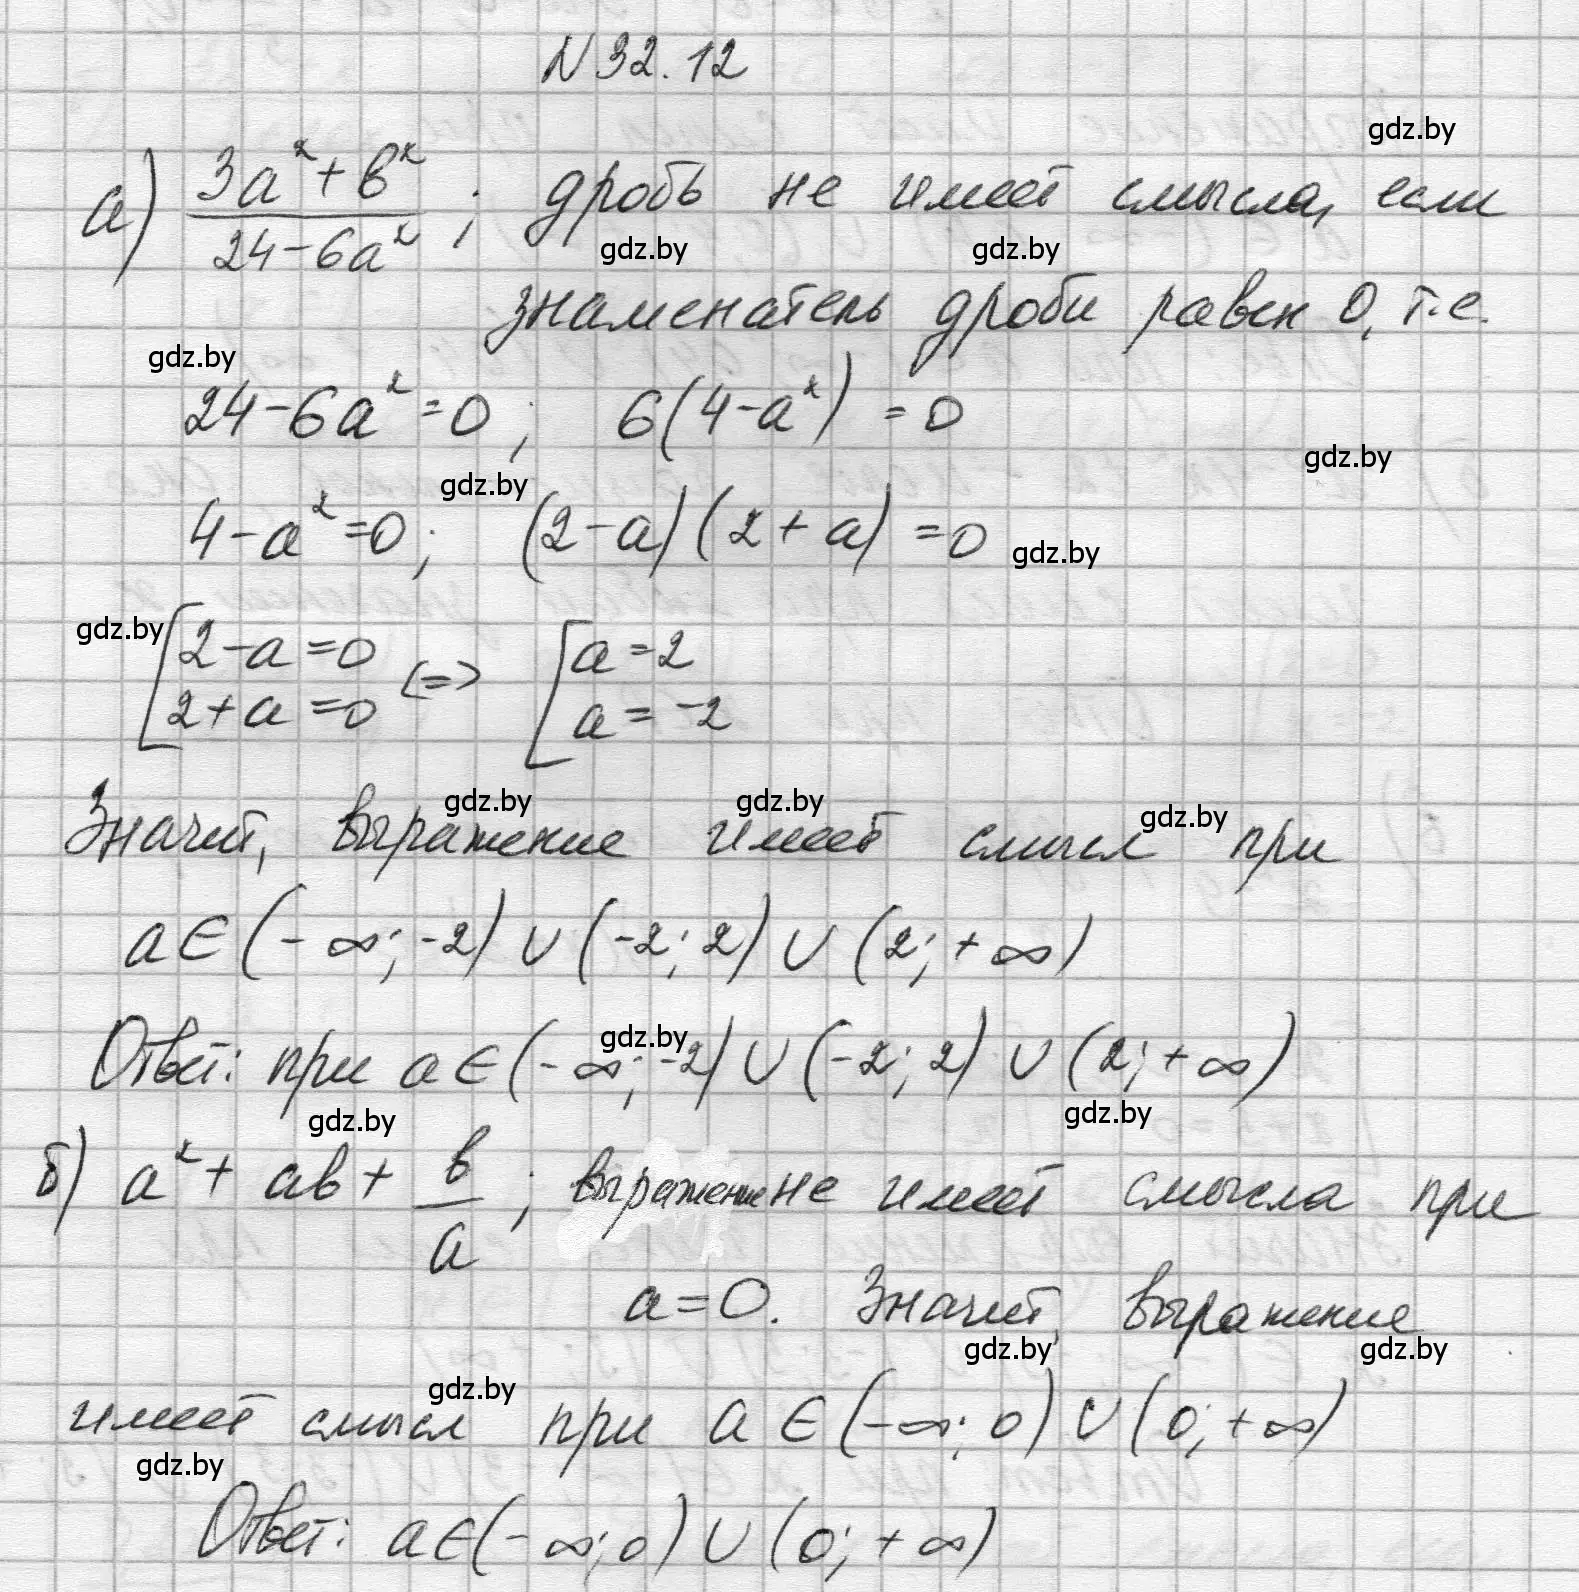 N 32.12
gdz.by
а) (3a² + b²)/(24 - 6a²) ; дробь не имеет смысла, если
gdz.by gdz.by
знаменатель дроби равен 0, т.е.
gdz.by
24 - 6a² = 0 ; 6(4 - a²) = 0
gdz.by
gdz.by
4 - a² = 0 ; (2 - a)(2 + a) = 0
gdz.by
gdz.by
[2 - a = 0 <=> [a = 2
[2 + a = 0 [a = -2
gdz.by gdz.by gdz.by
Значит, выражение имеет смысл при
a ∈ (-∞; -2) ∪ (-2; 2) ∪ (2; +∞)
gdz.by
Ответ: при a ∈ (-∞; -2) ∪ (-2; 2) ∪ (2; +∞)
gdz.by gdz.by
б) a² + ab + b/a ; выражение не имеет смысла при
a = 0. Значит, выражение
gdz.by gdz.by
gdz.by
имеет смысл при a ∈ (-∞; 0) ∪ (0; +∞)
gdz.by
Ответ: a ∈ (-∞; 0) ∪ (0; +∞)